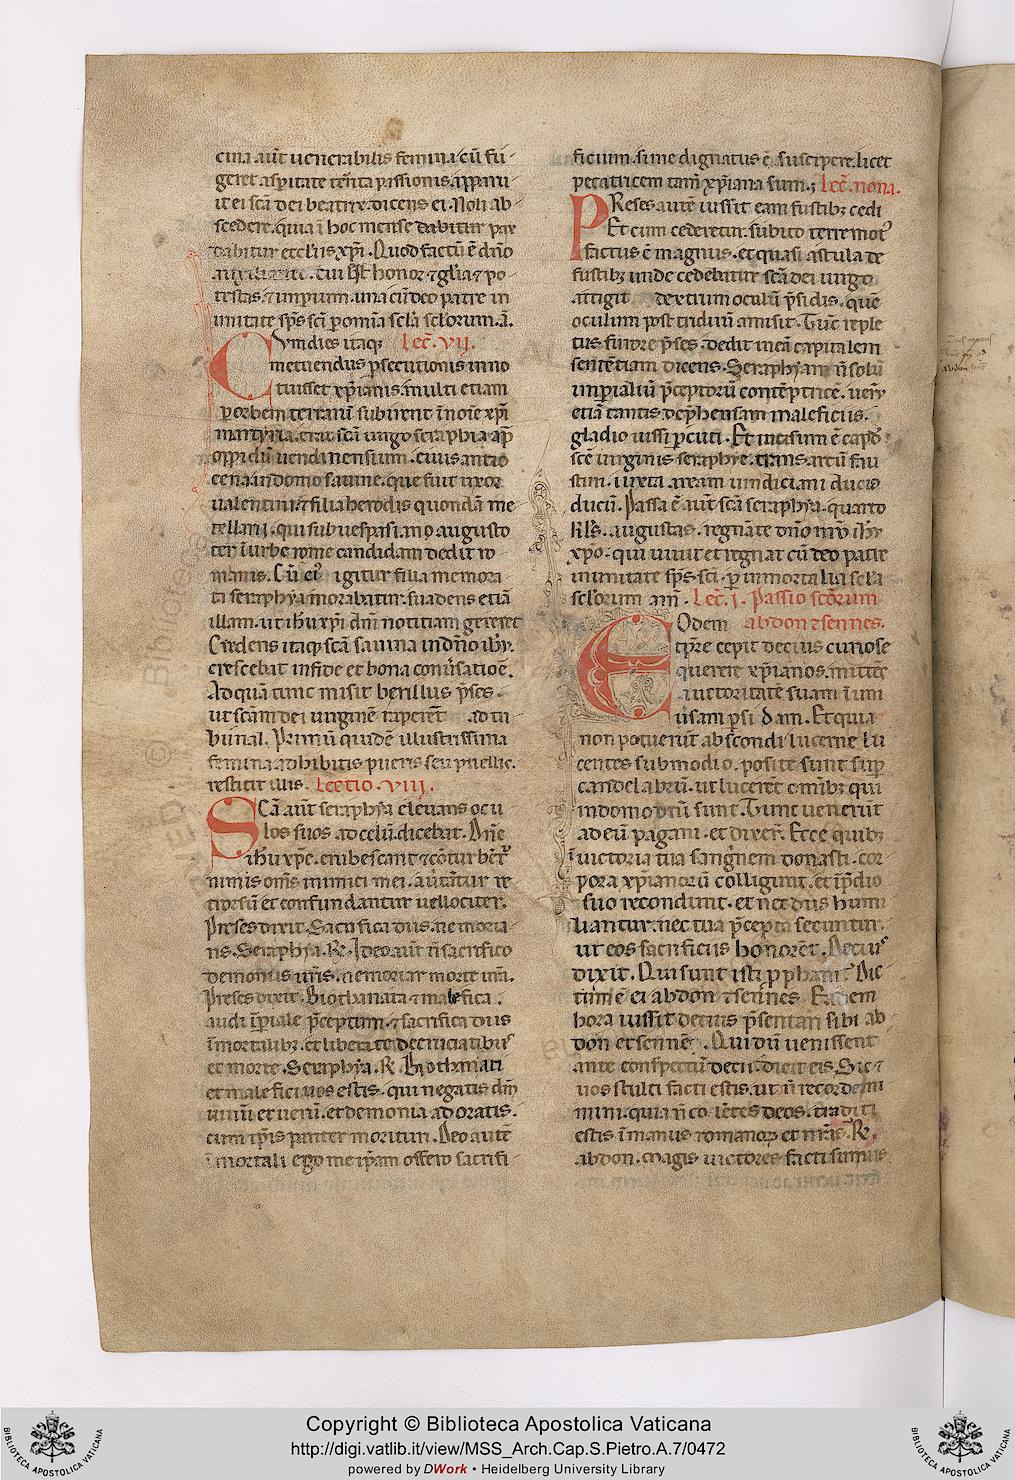 cina aut̄ uenerabilis femina cū fu
geret aspitate tēita passionis. apparu
it ei scā dei beatrix. dicens ei. Noli ab
scedere. quia ī hoc mense dabitur pax
dabitur ecclīis xp̄i. Quod factū ē dn̄o
auxiliante. cui est honor ⁊ glīa ⁊ po
testas. ⁊ imperium. una cū deo patre in
unitate sp̄s sc̄i p omīa sclā sclorum. a̅.
Cvm dies itaq; Lec̄. vij.
metuendus psecutionis inno
tuisset xp̄ianis. multi etiam
p orbem terrarū subirent ī noīe xp̄i
martyria. erat scā uirgo seraphia apd̄
oppidū uendinensium. ciuis antio
cena in domo sauine. que fuit uxor
ualentini. ⁊ filia herodis quondā me
tellarij. qui sub uespasiano augusto
ter ī urbe rome candidam dedit ro
manis. Cū ei' igitur filia memora
ta seraphya morabatur. suadens etiā
illam. ut ihu xp̄i dn̄i notitiam gereret
Credens itaq; scā sauina in dn̄o ihu.
crescebat in fide et bona conusatiōe.
Ad quā tunc misit berillus pses.
ut scām dei uirginē raperēt ad tri
bunal. Primū quidē illustrissima
femina adhibitis pueris seu puellis.
restitit illis. Lectio. viii.
SCā aut̄ seraphya eleuans ocu
los suos ad celū. dicebat. Dn̄e
ihu xp̄e. erubescant ⁊ cōturbēt̄
nimis om̄s inimici mei. auītātur re
trorsū et confundantur uellociter.
Preses dixit. Sacrifica diis. ne moria
ris. Seraphya. R̄. Ideo aut̄ n̄ sacrifico
demoniis uris. ne moriar morte urā.
Preses dixit. Biothanata ⁊ malefica.
audi īpiale pceptum. ⁊ sacrifica diis
īmortalib; et libera te de cruciatibus
et morte. Seraphya. R̄. Biothanati
et malefici uos estis. qui negatis dm̄
uiuū et uerū. et demonia adoratis.
cum ip̄is pariter morituri. Deo autē
īmortali ego me ip̄am offero sacrifi
ficium. si me dignatus ē suscipere. licet
peccatricem tam̄ xp̄iana sum. Lec̄. nona.
PReses autē iussit eam fustib; cedi
Et cum cederetur. subito terremot'
factus ē magnus. et quasi astula de
fustib; unde cedebatur scā dei uirgo
attigit dextrum oculū psidis. quē
oculum post triduū amisit. Tūc reple
tus furore pses. dedit in eā capitalem
sententiam dicens. Seraphyam n̄ solū
imperialiū pceptorū contēptricē. ueꝝ
etiā tantis dephensam maleficiis.
gladio iussi pcuti. Et incisum ē capd̄
scē uirginis seraphye. trans arcū fau
stini. iuxta aream uindiciani ducis
ducū. Passa ē aut̄ scā seraphya. quarto
kl's. augustas. regnāte dn̄o nr̄o ihu
xp̄o. qui uiuit et regnat cū deo patre
in unitate sp̄s sc̄i. p immortalia sclā
sclorum am̄. Lec̄. j. Passio scōrum
EOdem abdon ⁊ sennes.
tpre cepit decius curiose
querere xp̄ianos. mittēs
auctoritatē suam ī uni
ūsam psidam. Et qui a
non poterūt abscondi lucerne lu
centes sub modio. posite sunt sup
candelabrū. ut lucerēt omīb; qui
in domo dn̄i sunt. Tunc uenerūt
ad eū pagani. et dixer̄. Ecce quib;
uictoria tua sanguinem donasti. cor
pora xp̄ianorū colligunt. et īpdio
suo recondunt. et nec diis humi
liantur. nec tua pcepta secuntur.
ut eos sacrificiis honorēt. Decius
dixit. Qui sunt isti pphani? Dic
tum ē ei abdon ⁊ sennes. Eadem
hora iussit decius psentari sibi ab
don et sennē. Qui dū uenissent
ante conspectū decii. dicit eis. Sic ⁊
uos stulti facti estis. ut n̄ recorde
mini. quia n̄ colētes deos. traditi
estis ī manus romanoꝝ et nr̄is. R̄.
abdon. Magis uictores facti sumus
Copyright © Biblioteca Apostolica Vaticana
http://digi.vatlib.it/view/MSS_Arch.Cap.S.Pietro.A.7/0472
powered by DWork • Heidelberg University Library
BIBLIOTECA APOSTOLICA VATICANA
BIBLIOTECA APOSTOLICA VATICANA